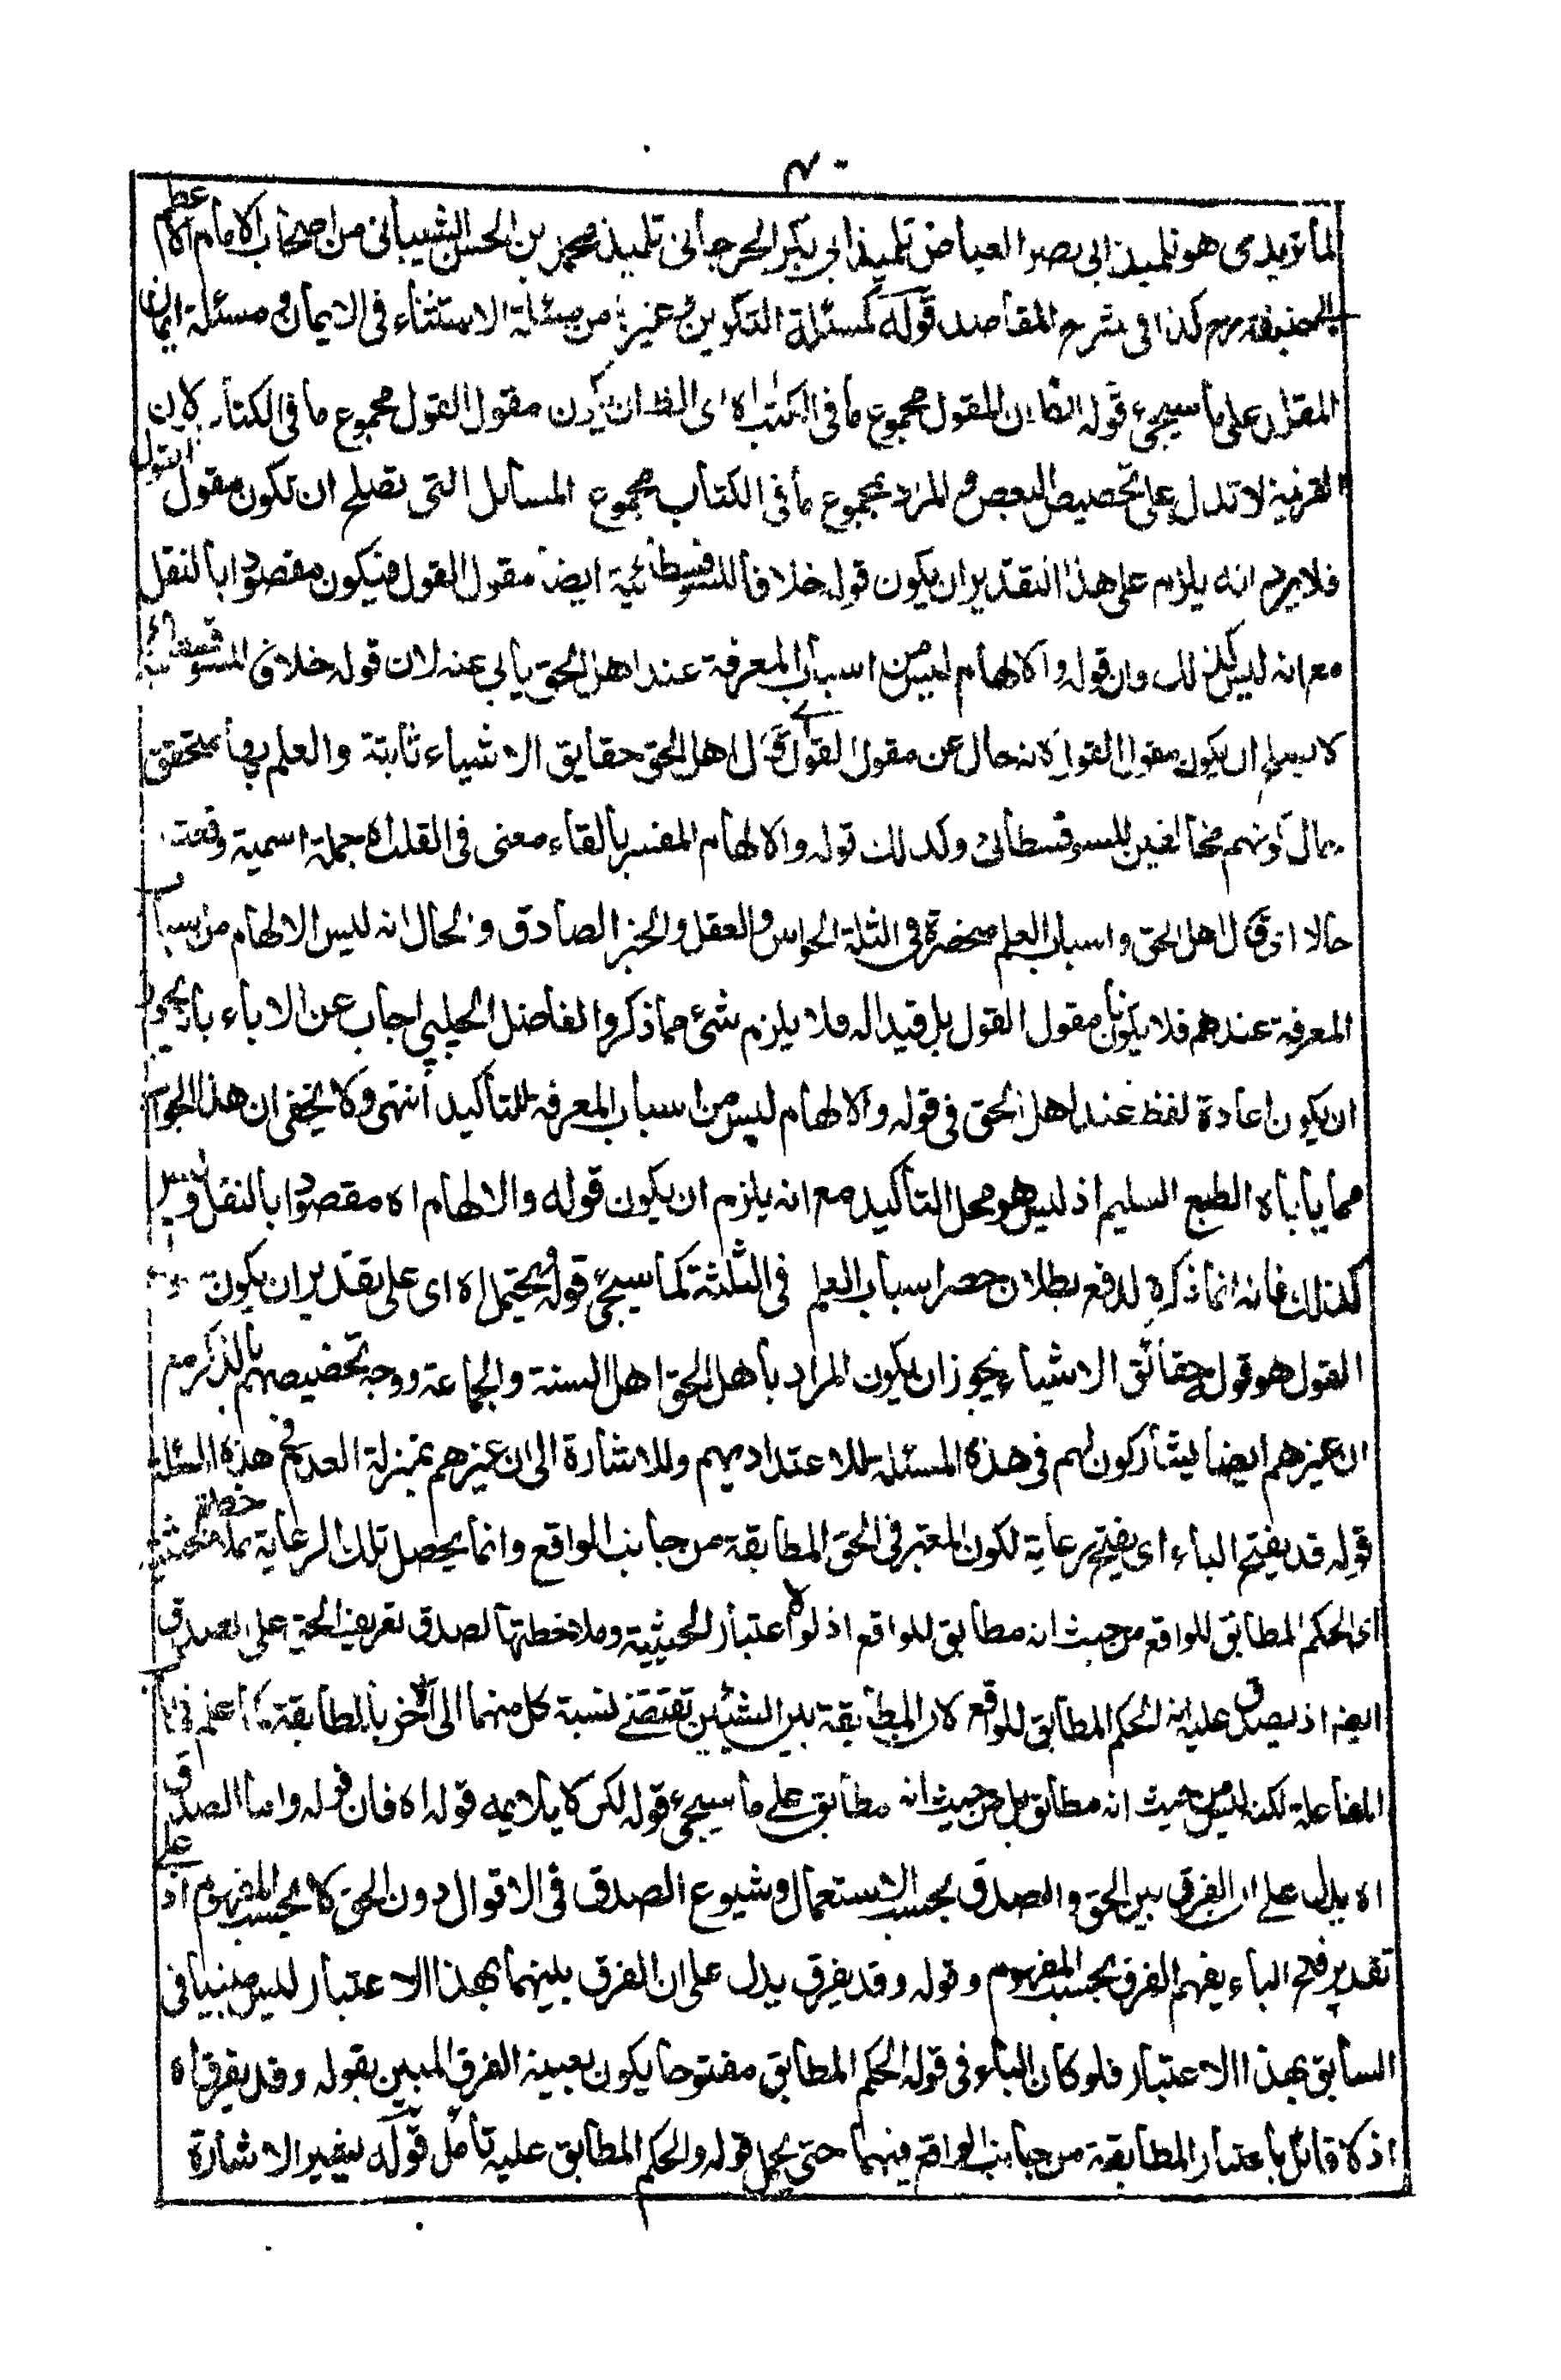 ٤٠
الماتريدى هو تلميذ ابى نصر العياض تلميذ ابى بكر الجرجانى تلميذ محمد بن الحسن الشيبانى من اصحاب الامام الاعظم
ابحنيفة رح كذا فى شرح المقاصد قوله كمسئلة التكوين وغيرها من مسئلة الاستثناء فى الايمان ومسئلة ايمان
المقلد على ما سيجئ قوله الظ ان المقول مجموع ما فى الكتاب اه اى الظ ان يكون مقول القول مجموع ما فى الكتاب لان
القرينة لا تدل على تخصيص البعض والمراد بمجموع ما فى الكتاب مجموع المسائل التى تصلح ان تكون مقول القول
فلا يرد انه يلزم على هذا التقدير ان يكون قوله خلافا للسوفسطائية ايضا مقول القول فيكون مقصودا بالنقل
مع انه ليس كذلك وان قوله والالهام ليس من اسباب المعرفة عند اهل الحق يأبى عنه لان قوله خلافا للسوفسطائية
لا يصلح ان يكون مقول القول لانه حال عن مقول القول اى قال اهل الحق حقايق الاشياء ثابتة والعلم بها متحقق
حال كونهم مخالفين للسوفسطائى وكذلك قوله والالهام المفسر بالقاء معنى فى القلب اه جملة اسمية وقعت
حالا اى قال اهل الحق واسباب العلم منحصرة فى الثلثة الحواس والعقل والخبر الصادق والحال انه ليس الالهام من اسباب
المعرفة عندهم فلا يكونان مقول القول بل قيدا له فلا يلزم شئ مما ذكر والفاضل الچلپى اجاب عن الاباء بانه يجوز
ان يكون اعادة لفظ عند اهل الحق فى قوله والالهام ليس من اسباب المعرفة للتأكيد انتهى ولا يخفى ان هذا الجواب
مما يأباه الطبع السليم اذ ليس هو محل التأكيد مع انه يلزم ان يكون قوله والالهام اه مقصودا بالنقل وليس
كذلك فانه انما ذكره لدفع بطلان حصر اسباب العلم فى الثلثة كما سيجئ قوله ويحتمل اه اى على تقدير ان يكون مقول
القول هو قوله حقائق الاشياء يجوز ان يكون المراد باهل الحق اهل السنة والجماعة ووجه تخصيصهم بالذكر مع
ان غيرهم ايضا يشاركون لهم فى هذه المسئلة للاعتداد بهم وللاشارة الى ان غيرهم بمنزلة العدم فى هذه المسئلة
قوله قد يفتح الباء اى يفتح رعاية لكون المعتبر فى الحق المطابقة من جانب الواقع وانما يحصل تلك الرعاية بملاحظة الحيثية
اى الحكم المطابق للواقع من حيث انه مطابق للواقع اذ لولا اعتبار الحيثية وملاحظتها لصدق تعريف الحق على الصدق
ايضا اذ يصدق عليه انه الحكم المطابق للواقع لان المطابقة بين الشيئين تقتضى نسبة كل منهما الى الآخر بالمطابقة كما علم فى باب
المفاعلة لكنه ليس من حيث انه مطابق بل من حيث انه مطابق على ما سيجئ قوله لكن لا يلايمه قوله اه فان قوله واما الصدق
اه يدل على ان الفرق بين الحق والصدق بحسب الاستعمال وشيوع الصدق فى الاقوال دون الحق لا بحسب المفهوم اذ على
تقدير فتح الباء يفهم الفرق بحسب المفهوم وقوله وقد يفرق يدل على ان الفرق بينهما بهذا الاعتبار ليس مبنيا فى
السابق بهذا الاعتبار فلو كان الباء فى قوله الحكم المطابق مفتوحا يكون بعينه الفرق المبين بقوله وقد يفرق اه
اذ لا قائل باعتبار المطابقة من جانب الواقع فيهما حتى يحمل قوله والحكم المطابق عليه تأمل قوله يشير الاشارة